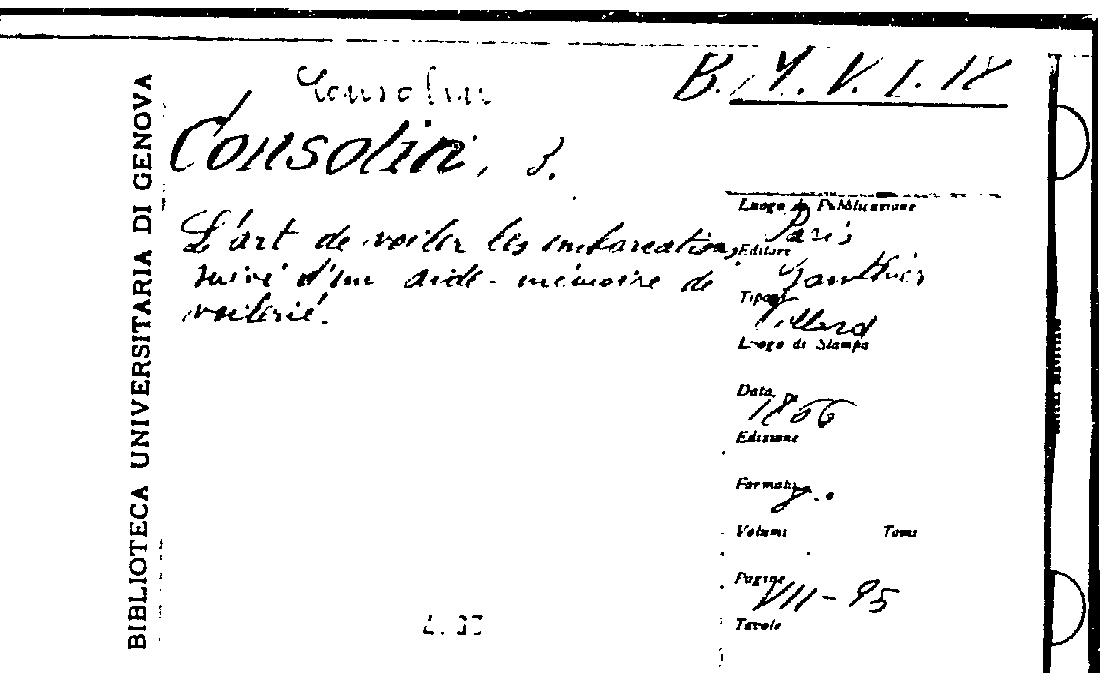 BIBLIOTECA UNIVERSITARIA DI GENOVA
Consolin
B. M. V. 1. 18
Consolin, B.
L'art de voiler les embarcations,
suivi d'un aide-mémoire de
voilerie.
Luogo di Pubblicazione
Paris
Editore
Gauthier
Tipogr.
Villard
Luogo di Stampa
Data
1866
Edizione
Formato
8.°
Volumi Tomi
Pagine
VII-95
Tavole